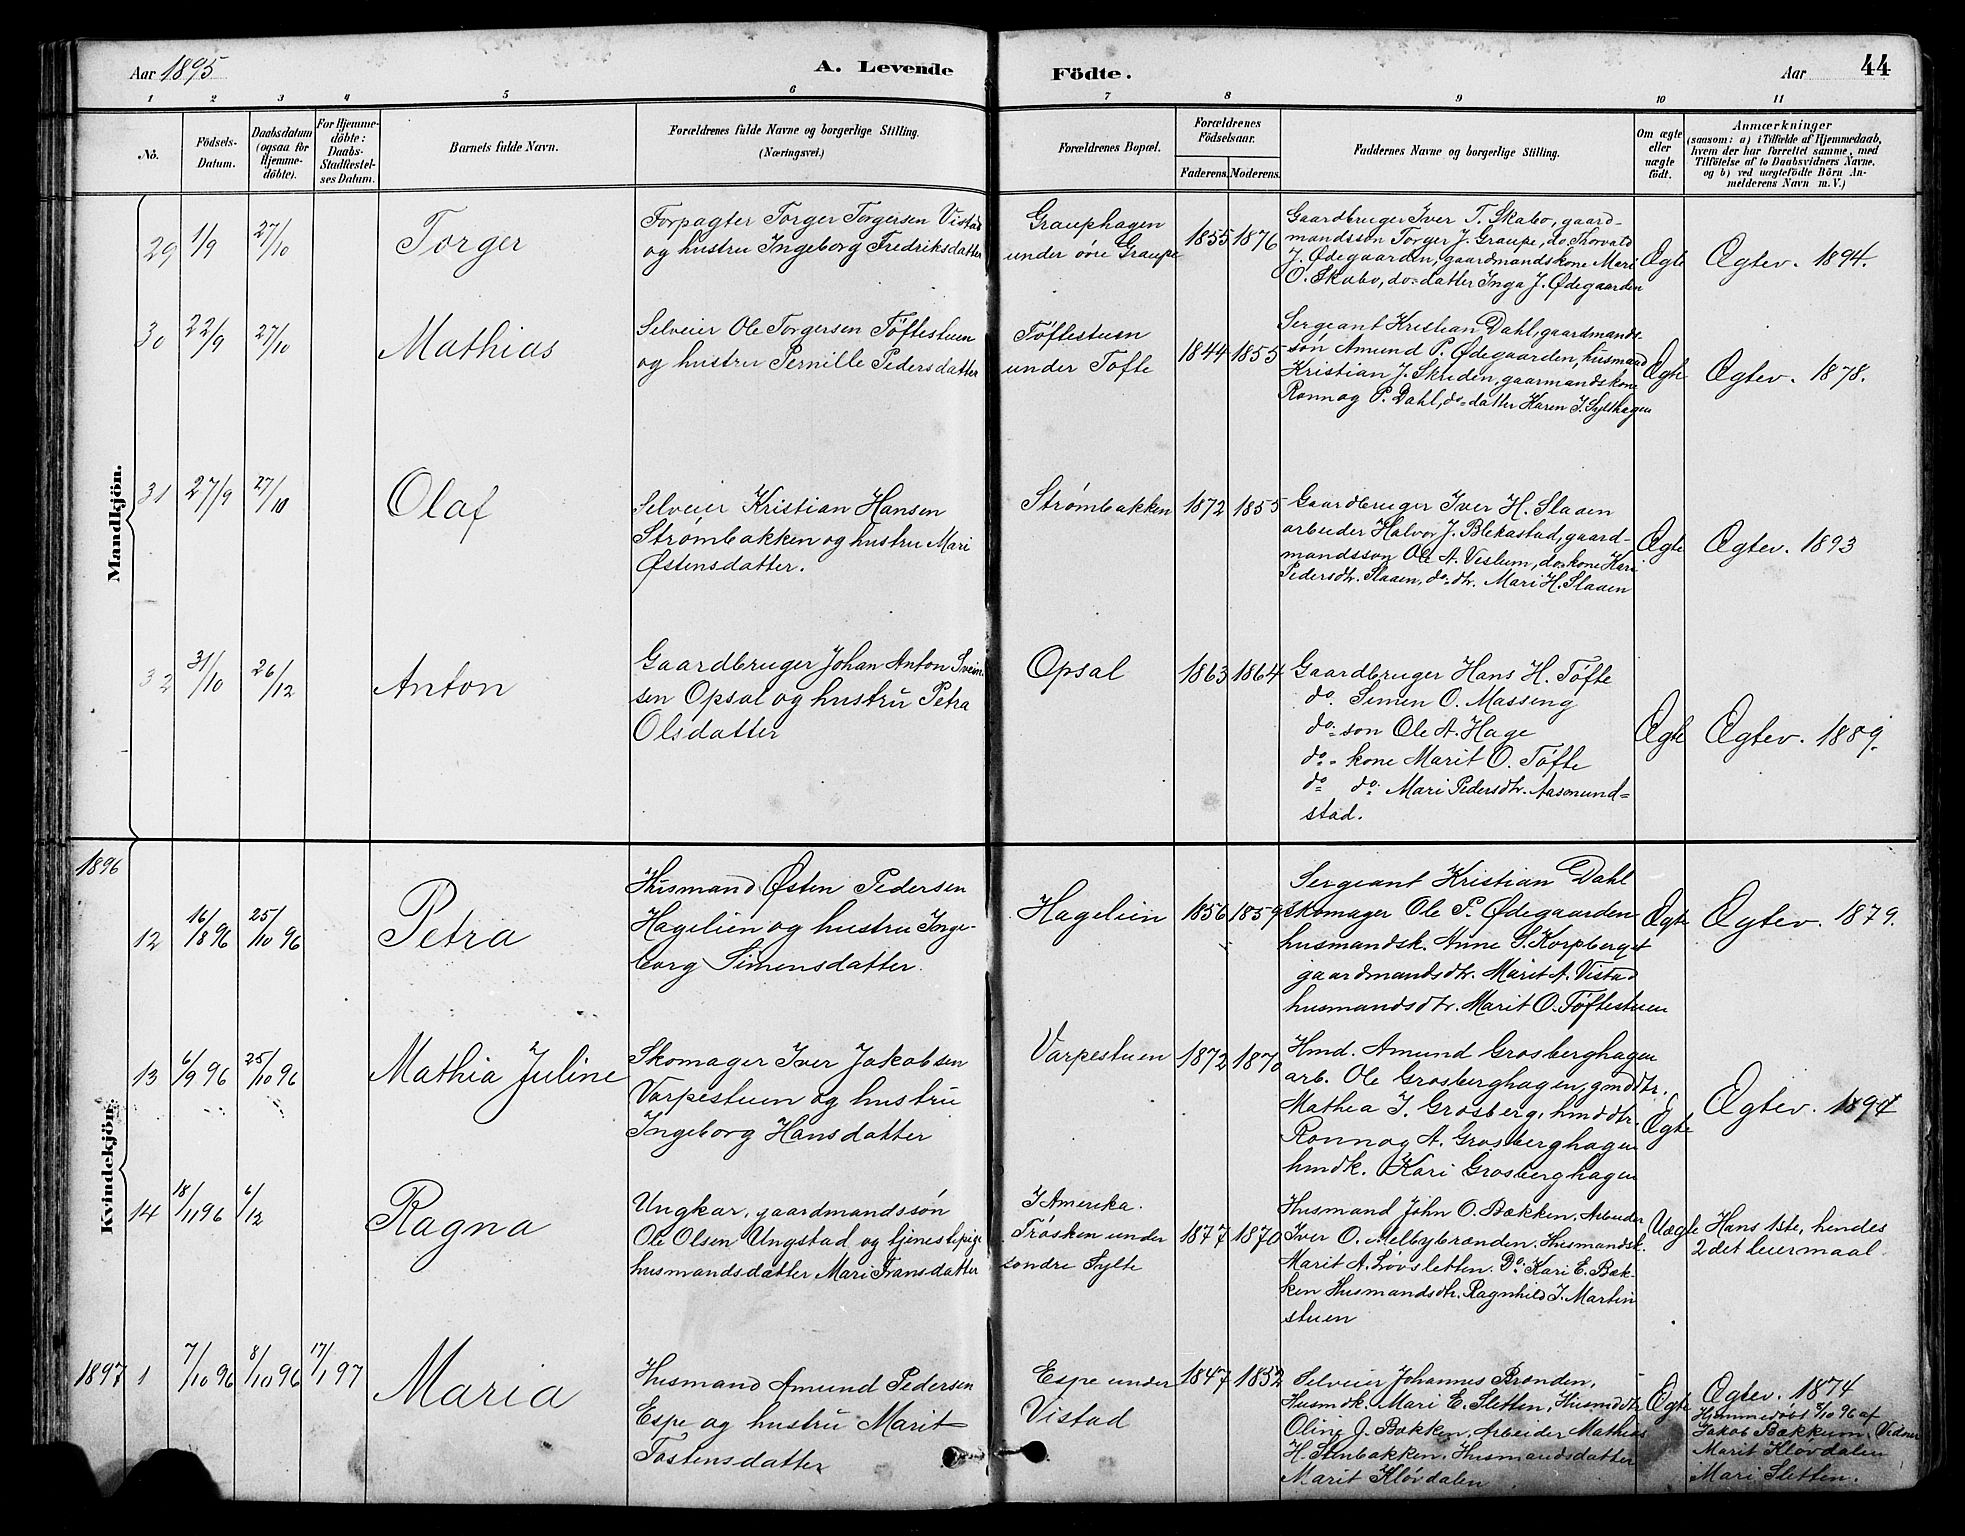 Aar 1895
A. Levende Födte.
Aar
44
1 2 3 4 5 6 7 8 9 10 11
No.
Födsels-
Datum.
Daabsdatum
(ogsaa for
Hjemme-
döbte).
For Hjemme-
döbte:
Daabs-
Stadfæstel-
ses Datum.
Barnets fulde Navn.
Forældrenes fulde Navne og borgerlige Stilling.
(Næringsvei.)
Forældrenes Bopæl.
Forældrenes
Födselsaar.
Faderens. Moderens.
Faddernes Navne og borgerlige Stilling.
Om ægte
eller
uægte
födt.
Anmærkninger
(saasom: a) i Tilfælde af Hjemmedaab,
hvem der har forrettet samme, med
Tilföielse af to Daabsvidners Navne.
og b) ved uægtefödte Börn An-
melderens Navn m. V.)
Mandkjön.
29 1/9 27/10
Torger
Forpagter Torger Torgersen Vistad
og hustru Ingeborg Fredriksdatter
Grauphagen
under övre Graupe
1855 1876
Gaardbruger Iver T. Skabo, gaard-
mandssön Torger J. Graupe, do. Thorvald
J. Ødegaarden, gaardmandskone Mari
O. Skabo, do=datter Inga J. Ødegaarden
Ægte
Ægtev. 1894.
30 22/9 27/10
Mathias
Selveier Ole Torgersen Töftestuen
og hustru Pernille Pedersdatter
Töftestuen
under Töfte
1844 1855
Sergeant Kristian Dahl, gaardmands-
sön Amund P. Ødegaarden, husmand
Kristian J. Skriden, gaarmandskone
Ronnog P. Dahl, do=datter Karen J. Sylthagen
Ægte
Ægtev. 1878.
31 27/9 27/10
Olaf
Selveier Kristian Hansen
Strømbakken og hustru Mari
Østensdatter.
Strømbakken
1872 1855
Gaardbruger Iver H. Slaaen
arbeider Halvor J. Blekastad, gaard-
mandsson Ole A. Veslum, do=kone Kari
Pedersdtr. Slaaen, do=dtr. Mari H. Slaaen
Ægte
Ægtev. 1893
32 31/10 26/12
Anton
Gaardbruger Johan Anton Svein-
sen Opsal og hustru Petra
Olsdatter
Opsal
1863 1864
Gaardbruger Hans H. Töfte
do. Simen O. Masseng
do=son Ole A. Hage
do=kone Marit O. Töfte
do do. Mari Pedersdtr. Aasmund=
stad.
Ægte
Ægtev. 1889.
Kvindekjön.
1896
12 16/8 96 25/10 96
Petra
Husmand Østen Pedersen
Hagelien og hustru Inge-
borg Simensdatter.
Hagelien
1856 1859
Sergeant Kristian Dahl
Skomager Ole P. Ødegaarden
husmandsk. Anne S. Korpberget
gaardmandsdtr. Marit A. Vistad
husmandsdtr. Marit O. Töftestuen
Ægte
Ægtev. 1879.
13 6/9 96 25/10 96
Mathia Juline
Skomager Iver Jakobsen
Varpestuen og hustru
Ingeborg Hansdatter
Varpestuen
1872 1870
Hmd. Amund Grosberghagen
arb. Ole Grosberghagen, gmddtr.
Mathea J. Grosberg, hmddtr.
Ronnog A. Grosberghagen
hmdk. Kari Grosberghagen
Ægte
Ægtev. 1894
14 18/11 96 6/12
Ragna
Ungkar, gaardmandssön
Ole Olsen Ungstad og tjenestepige
husmandsdatter Mari Fransdatter
I Amerika.
Trösken under
söndre Sylte
1877 1870
Husmand John O. Bækken. Arbeider
Iver O. Melbybrænden. Husmandsk.
Marit A. Lövsletten. Do. Kari E. Bæk-
ken Husmandsdtr. Ragnhild J. Martin
stuen
Uægte
Hans 1ste, hendes
2det leiermaal.
1897 1 7/10 96 8/10 96 17/1 97
Maria
Husmand Amund Pedersen
Espe og hustru Marit
Tostensdatter
Espe under
Vistad
1847 1852
Selveier Johannes Brænden,
Husmdk. Mari E. Sletten, Husmddtr.
Oline J. Bakken, Arbeider Mathias
H. Stenbakken. Husmandsdatter
Marit Klövdalen
Ægte
Ægtev. 1874
Hjemmedöbt 8/10 96 af
Jakob Bækkum. Vidner
Marit Klövdalen
Mari Sletten.